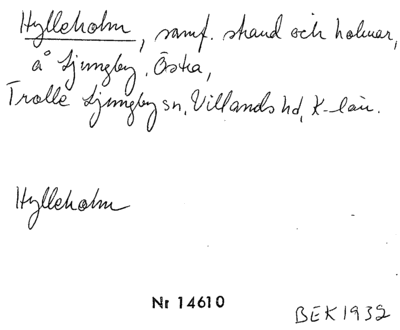 Hylleholm, samf. strand och holmar,
å Ljungby, Östra,
Trolle Ljungby sn, Villands hd, K-län.
Hylleholm
Nr 14610
BEK 1932